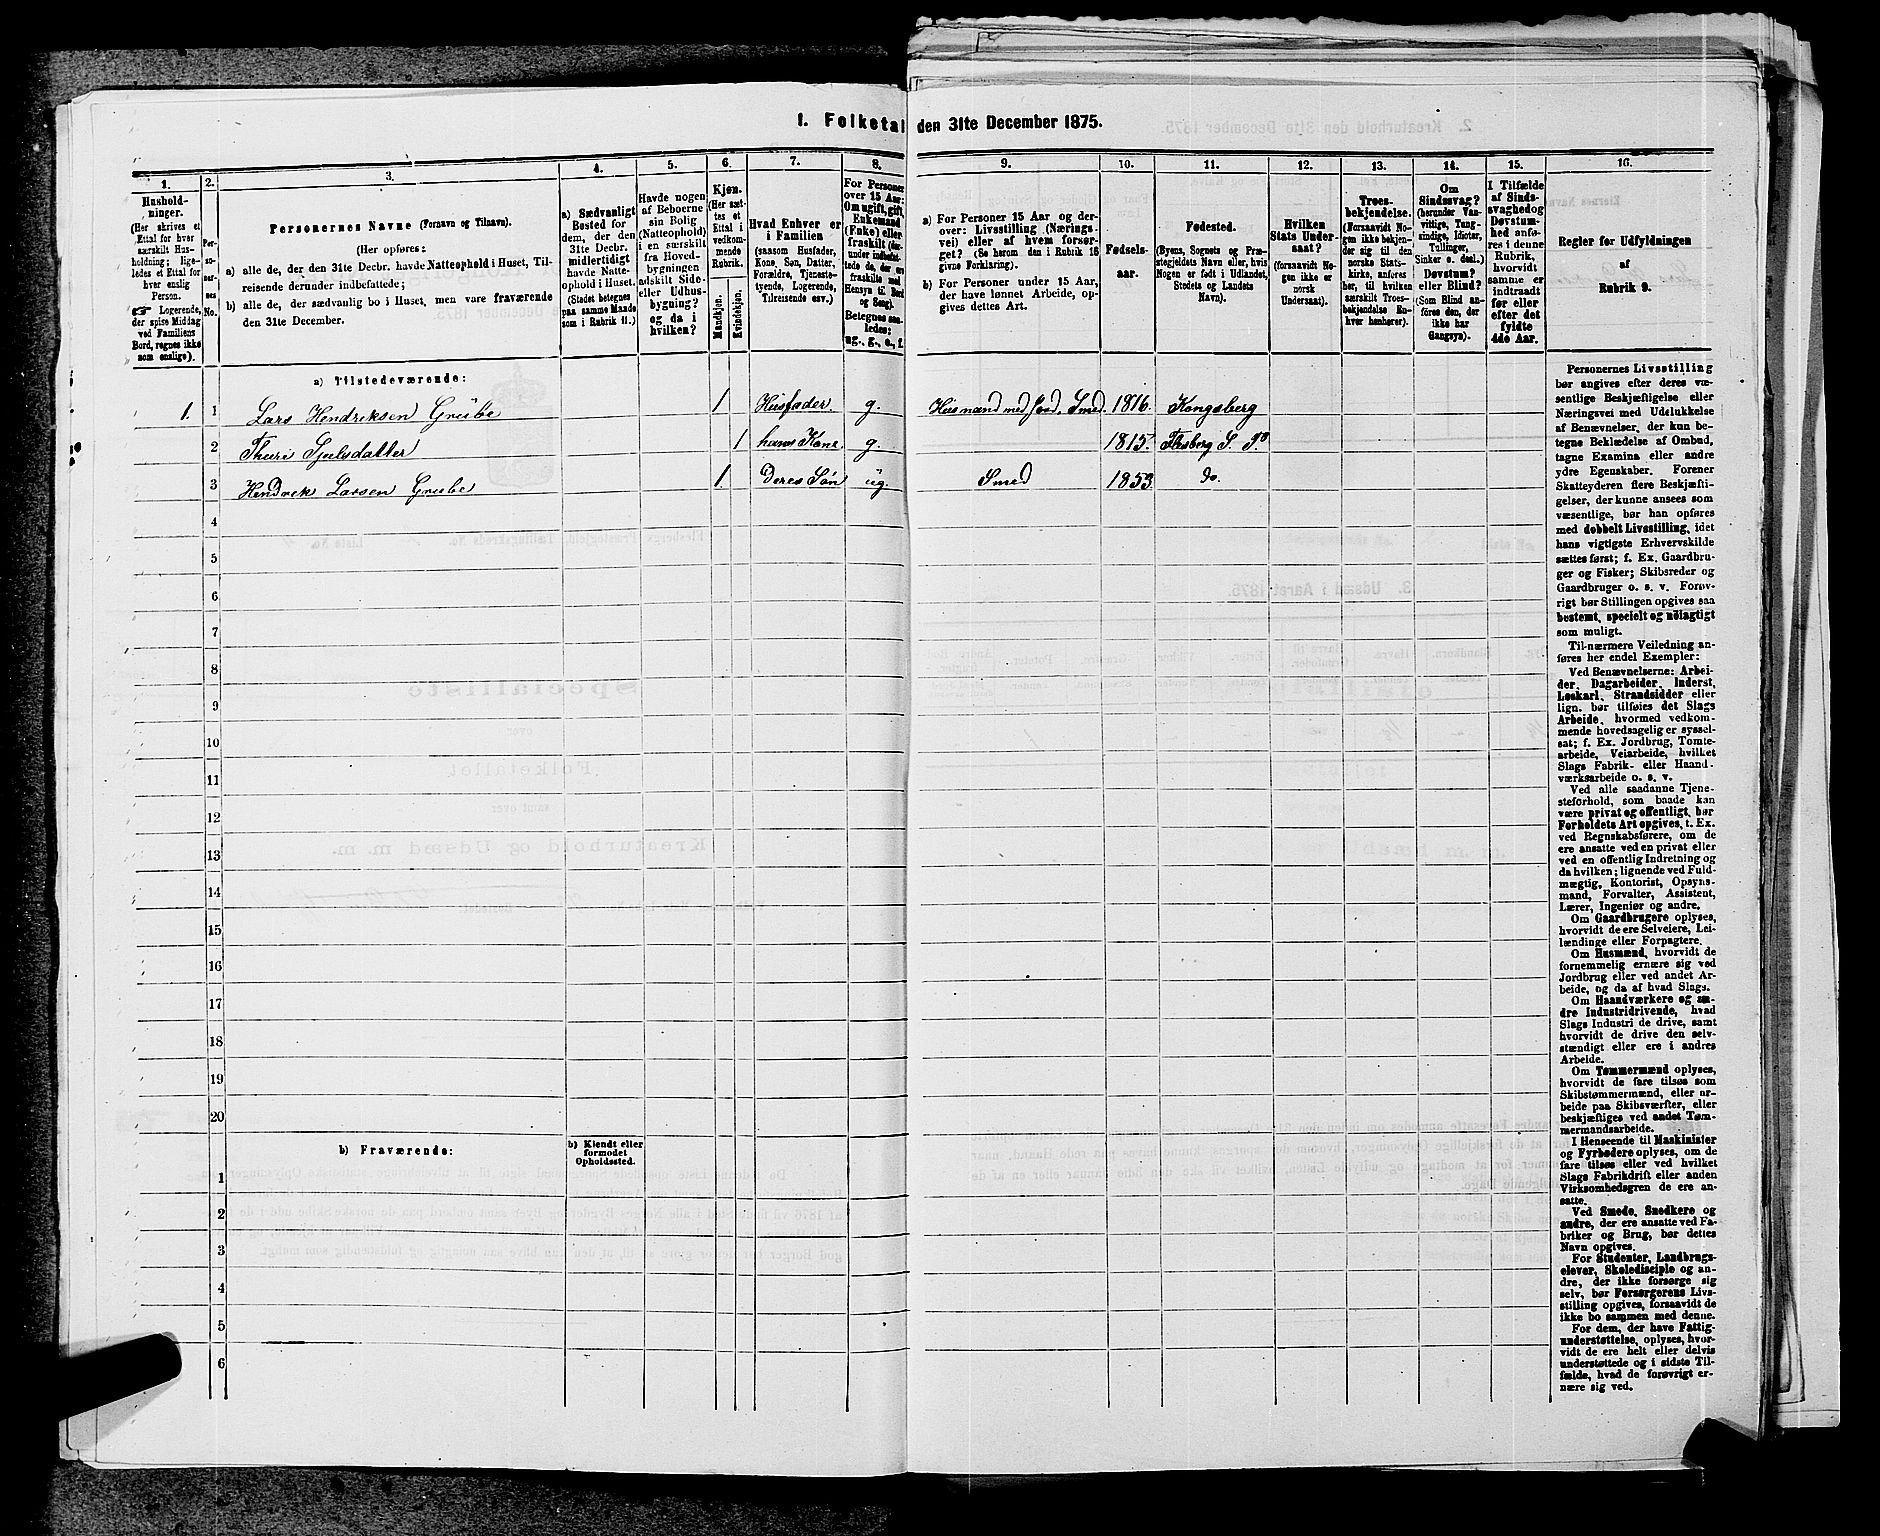 1. Folketal den 31te December 1875.
1.
2.
3.
4.
5.
6.
7.
8.
9.
10.
11.
12.
13.
14.
15.
16.
Hushold-
ninger.
(Her skrives et
Ettal for hver
særskilt Hus-
holdning; lige-
ledes et Ettal for
hver enslig
Person.
☞ Logerende,
der spise Middag
ved Familiens
Bord, regnes ikke
som enslige).
Per-
so-
ner-
nes
No.
Personernes Navne (Fornavn og Tilnavn).
(Her opføres:
a) alle de, der den 31te Decbr. havde Natteophold i Huset, Til-
reisende derunder indbefattede;
b) alle de, der sædvanlig bo i Huset, men vare fraværende
den 31te December.
a) Sædvanligt
Bosted for
dem, der den
31te Decbr.
midlertidigt
havde Natte-
ophold i Huset.
(Stedet betegnes
paa samme Maade
som i Rubrik 11.)
Havde nogen
af Beboerne
sin Bolig
(Natteophold)
i en særskilt
fra Hoved-
bygningen
adskilt Side-
eller Udhus-
bygning?
og da i
hvilken?
Kjøn.
(Her sæt-
tes et
Ettal i
vedkom-
mende
Rubrik.
Mandkjøn.
Kvindekjøn.
Hvad Enhver er
i Familien
(saasom Husfader,
Kone, Søn, Datter,
Forældre, Tjeneste-
tyende, Logerende,
Tilreisende osv.)
For Personer
over 15 Aar:
Om ugift, gift,
Enkemand
(Enke) eller
fraskilt (der-
under indbefat-
tede de, der ere
fraskilte med
Hensyn til Bord
og Seng).
Betegnes saa-
ledes:
ug., g., e., f.
a) For Personer 15 Aar og der-
over: Livsstilling (Nærings-
vei) eller af hvem forsør-
get? (Se herom den i Rubrik 16
givne Forklaring).
b) For Personer under 15 Aar,
der have lønnet Arbeide, op-
gives dettes Art.
Fødsels-
aar.
Fødested.
(Byens, Sognets og Præ-
stegjeldets Navn eller, hvis
Nogen er født i Udlandet,
Stedets og Landets
Navn).
Hvilken
Stats Under-
saat?
(forsaavidt No-
gen ikke er
norsk
Undersaat).
Troes-
bekjendelse.
(Forsaavidt No-
gen ikke bekjen-
der sig til den
norske Stats-
kirke, anføres
her, til hvilken
særskilt Troes-
bekjendelse En-
hver henhører).
Om
Sindssvag?
(herunder Van-
vittige, Tung-
sindige, Idioter,
Tullinger,
Sinker o. desl.)
Døvstum?
eller Blind?
(Som Blind an-
føres den, der
ikke har
Gangsyn).
I Tilfælde
af Sinds-
svaghed og
Døvstum-
hed anfø-
res i denne
Rubrik,
hvorvidt
samme er
indtraadt
før eller
efter det
fyldte
4de Aar.
Regler for Udfyldningen
af
Rubrik 9.
a) Tilstedeværende:
1. 1 Lars Hendriksen Grube 1 Husfader. g. Husmand med Jord. Smed. 1816. Kongsberg
2 Thuri Sjulsdatter 1 hans Kone. g. 1815. Flesberg S. Pd
3 Hendrik Larsen Grube 1. Deres Søn ug. Smed 1853. do.
4
5
6
7
8
9
10
11
12
13
14
15
16
17
18
19
20
b) Fraværende:
b) Kjendt eller
formodet
Opholdssted.
1
2
3
4
5
6
Personernes Livsstilling
bør angives efter deres væ-
sentlige Beskjæftigelse eller
Næringsvei med Udelukkelse
af Benævnelser, der kun be-
tegne Beklædelse af Ombud,
tagne Examina eller andre
ydre Egenskaber. Forener
Skatteyderen flere Beskjæfti-
gelser, der kunne ansees som
væsentlige, bør han opføres
med dobbelt Livsstilling, idet
hans vigtigste Erhvervskilde
sættes først; f. Ex. Gaardbru-
ger og Fisker; Skibsreder og
Gaardbruger o. s. v. Forøv-
rigt bør Stillingen opgives saa
bestemt, specielt og nöiagtigt
som muligt.
Til nærmere Veiledning an-
føres her endel Exempler:
Ved Benævnelserne: Arbei-
der, Dagarbeider, Inderst,
Løskarl, Strandsidder eller
lign. bør tilføies det Slags
Arbeide, hvormed vedkom-
mende hovedsagelig er syssel-
sat; f. Ex. Jordbrug, Tomte-
arbeide, Veiarbeide, hvilket
Slags Fabrik- eller Haand-
værksarbeide o. s. v.
Ved alle saadanne Tjene-
steforhold, som baade kan
være privat og offentligt, bør
Forholdets Art opgives, t. Ex.
ved Regnskabsførere, om de
ere ansatte ved en privat eller
ved en offentlig Indretning og
da hvilken; lignende ved Fuld-
mægtig, Kontorist, Opsyns-
mand, Forvalter, Assistent,
Lærer, Ingeniør og andre.
Om Gaardbrugere oplyses,
hvorvidt de ere Selveiere, Lei-
lændinge eller Forpagtere.
Om Husmænd, hvorvidt de
fornemmelig ernære sig ved
Jordbrug eller ved andet Ar-
beide, og da af hvad Slags.
Om Haandværkere og an-
dre Industridrivende, hvad
Slags Industri de drive, samt
hvorvidt de drive den selv-
stændigt eller ere i andres
Arbeide.
Om Tømmermænd oplyses,
hvorvidt de fare tilsøs som
Skibstømmermænd, eller ar-
beide paa Skibsværfter, eller
beskjæftiges ved andet Tøm-
mermandsarbeide.
I Henseende til Maskinister
og Fyrbødere oplyses, om de
fare tilsøs eller ved hvilket
Slags Fabrikdrift eller anden
Virksomhedsgren de ere an-
satte.
Ved Smede, Snedkere og
andre, der ere ansatte ved Fa-
briker og Brug, bør dettes
Navn opgives.
For Studenter, Landbrugs-
elever, Skoledisciple og an-
dre, der ikke forsørge sig
selv, bør Forsørgerens Livs-
stilling opgives, forsaavidt de
ikke bo sammen med denne.
For dem, der have Fattig-
understøttelse, oplyses, hvor-
vidt de ere helt eller delvis
understøttede og i sidste Til-
fælde, hvad de forøvrigt er-
nære sig ved.